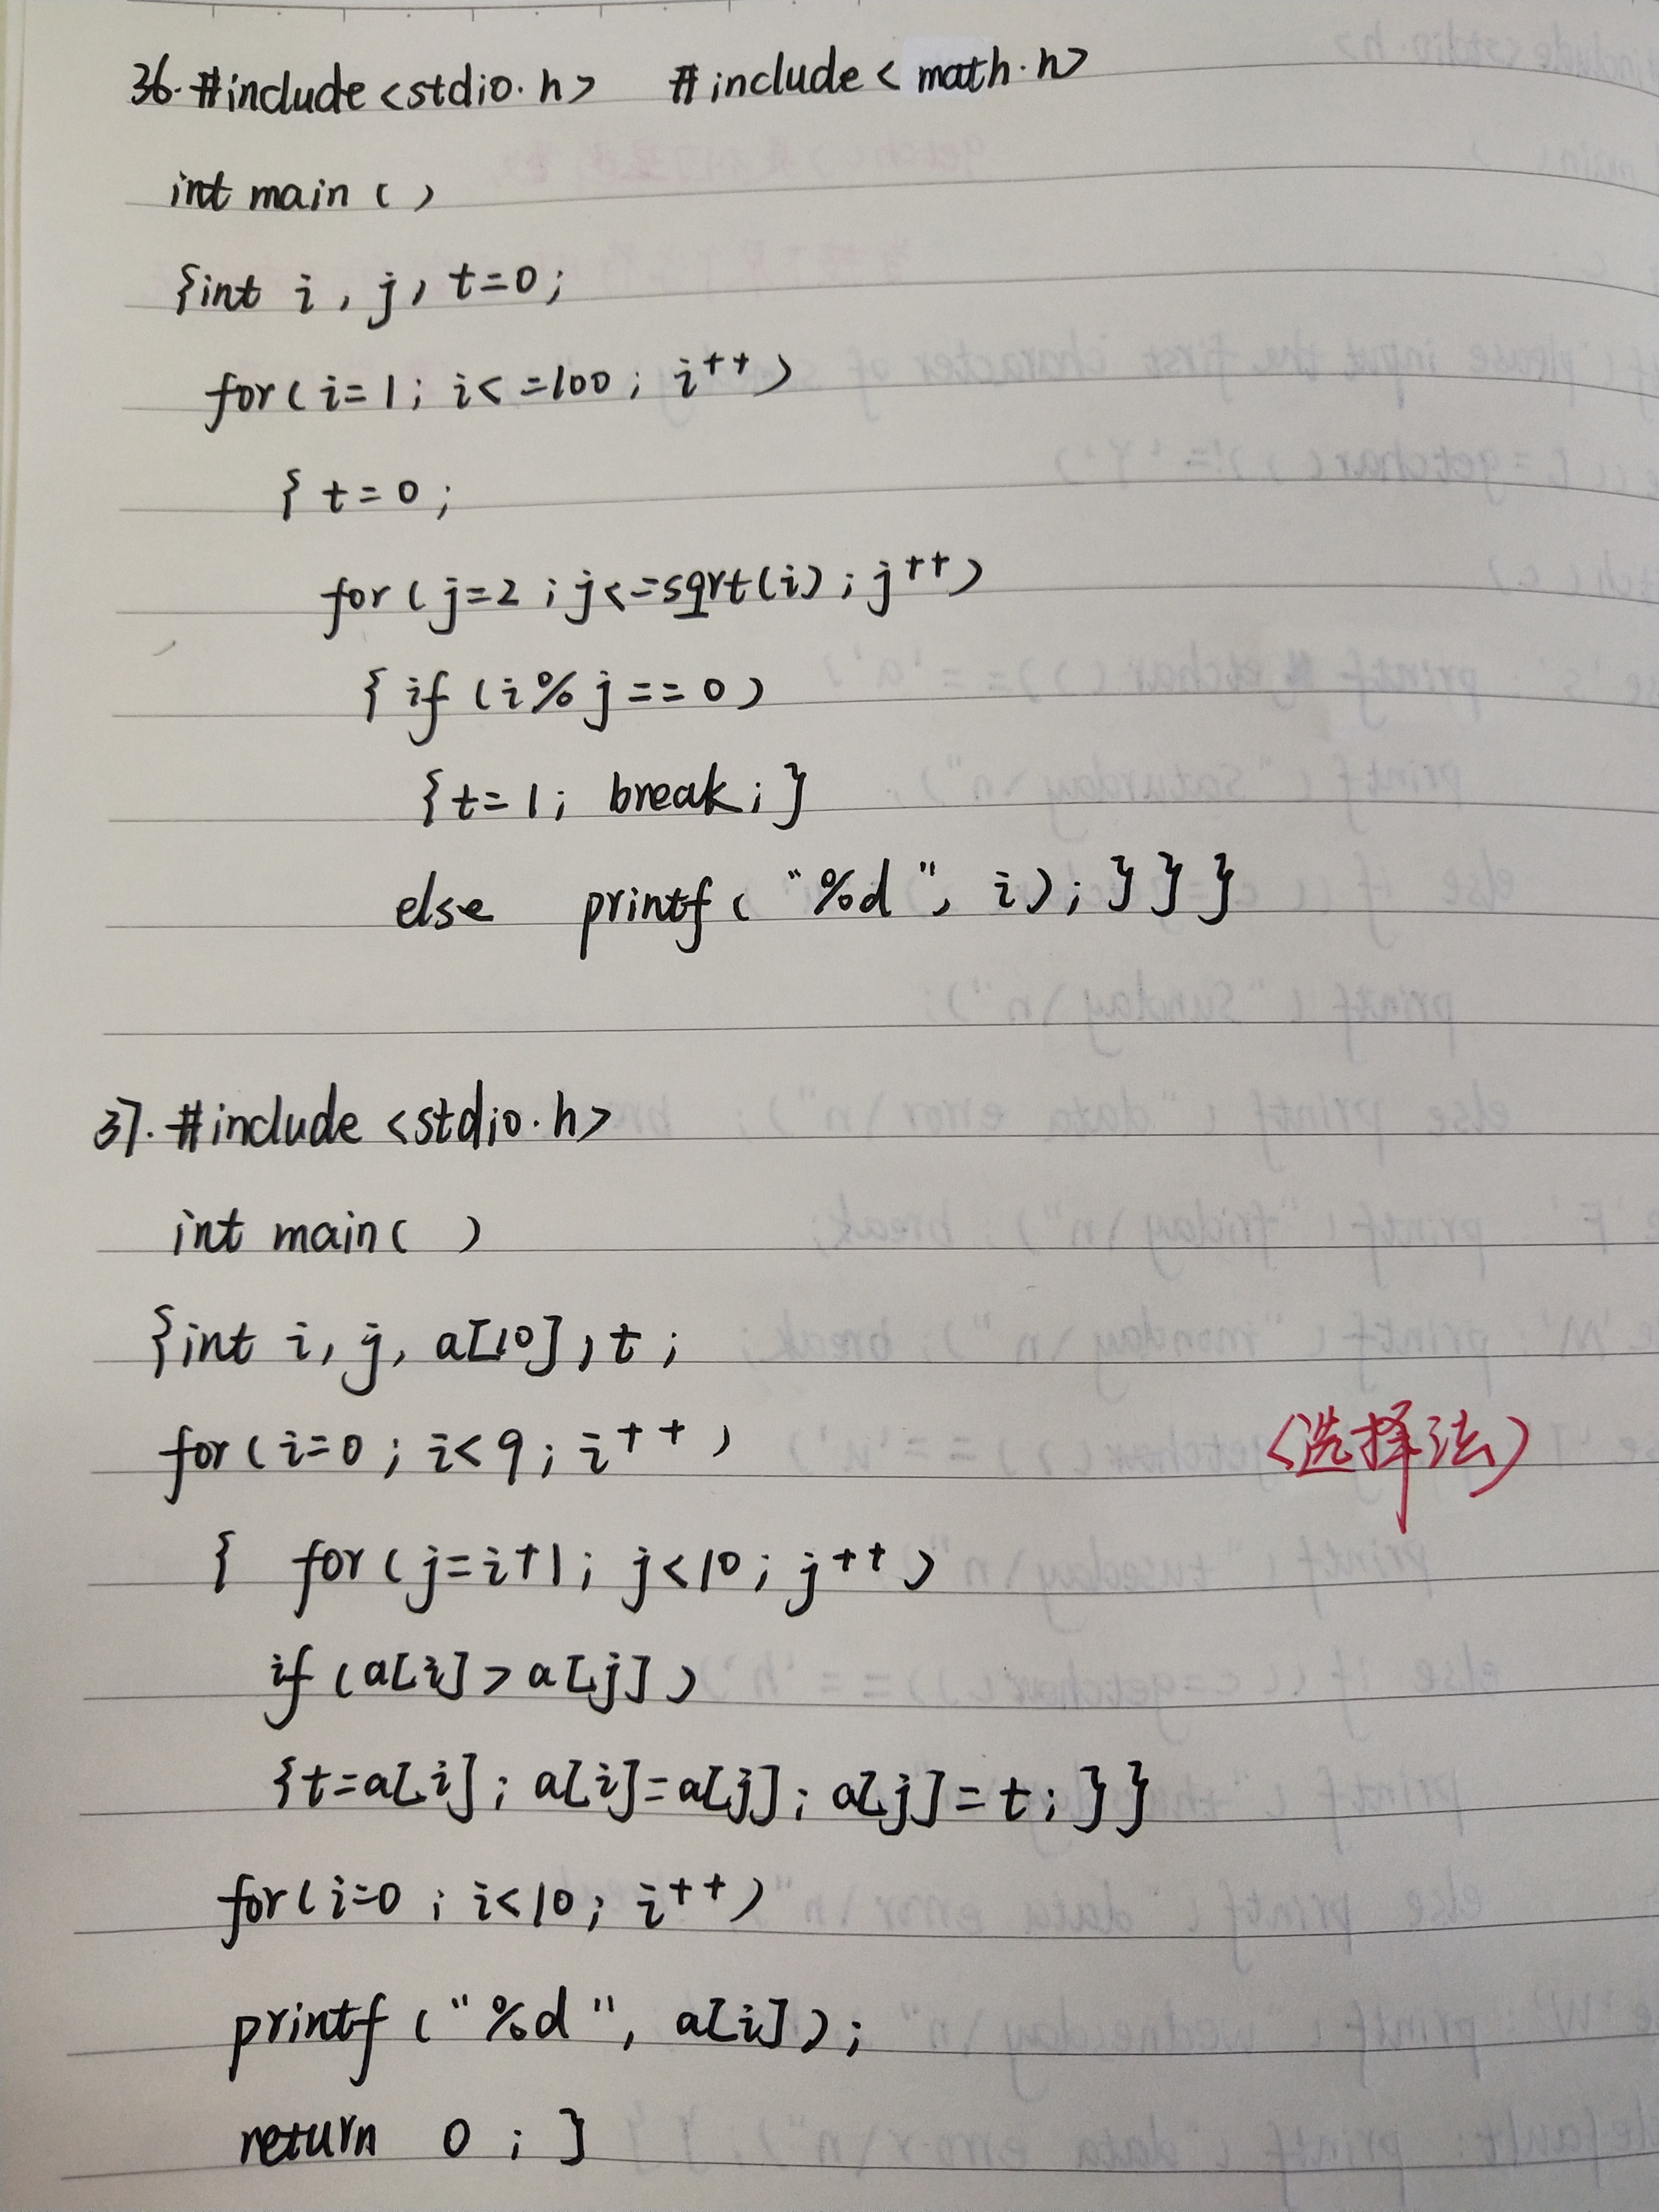 36. #include <stdio.h> #include <math.h>
int main ( )
{int i, j, t=0;
for (i=1; i<=100; i++)
{ t=0;
for (j=2; j<=sqrt(i); j++)
{ if (i%j==0)
{t=1; break;}
else printf ("%d", i); } } }
37. #include <stdio.h>
int main ( )
{int i, j, a[10], t;
for (i=0; i<9; i++) (选择法)
{ for (j=i+1; j<10; j++)
if (a[i]>a[j])
{t=a[i]; a[i]=a[j]; a[j]=t; } }
for (i=0; i<10; i++)
printf ("%d", a[i]);
return 0; }